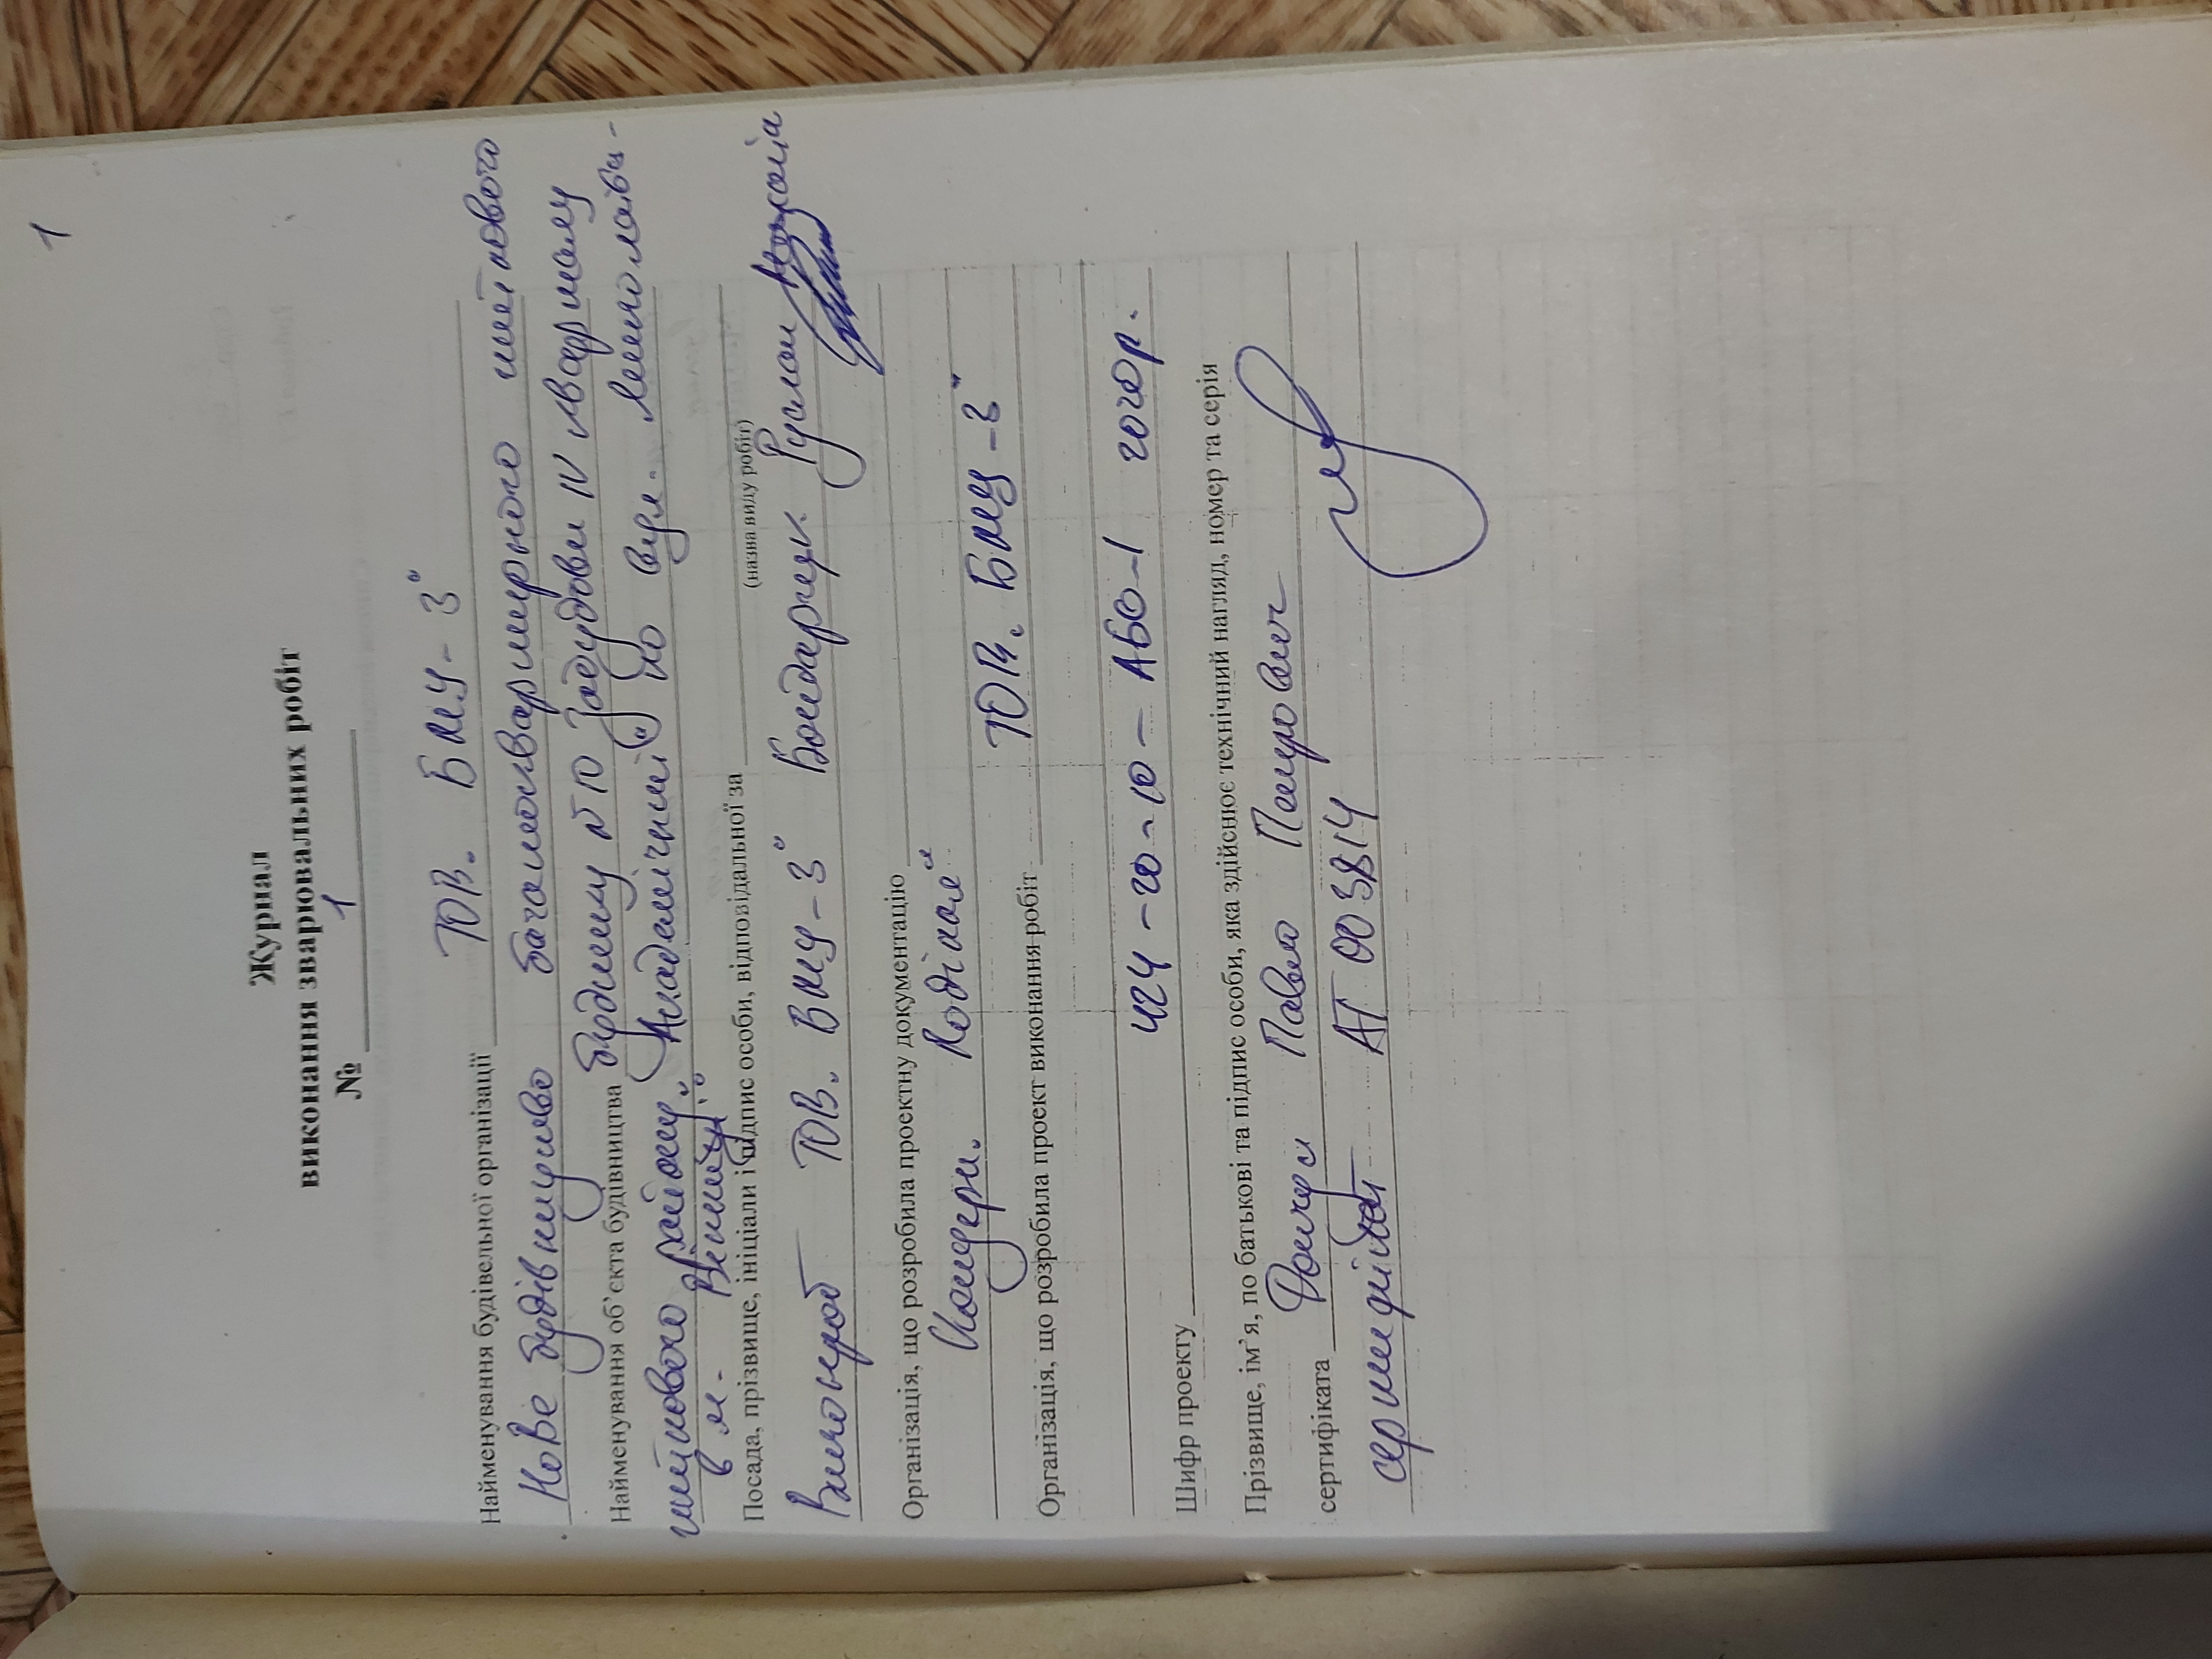 1
Журнал
виконання зварювальних робіт
№ 1
Найменування будівельної організації ТОВ „БМУ-3"
Нове будівництво багатоквартирного житлового
Найменування об'єкта будівництва будинку №10 забудови IV кварталу
житлового району „Академічний" по вул.
в м. Вінниця"
Посада, прізвище, ініціали і підпис особи, відповідальної за
(назва виду робіт)
Виконроб ТОВ „БМУ-3" Бондарчук Руслан
Організація, що розробила проектну документацію
„Поділля"
Організація, що розробила проект виконання робіт ТОВ „БМУ-3"
Шифр проекту 424-20-10-АБО-1 2020р.
Прізвище, ім'я, по батькові та підпис особи, яка здійснює технічний нагляд, номер та серія
сертифіката Павло Петрович
сертифікат АТ 003814